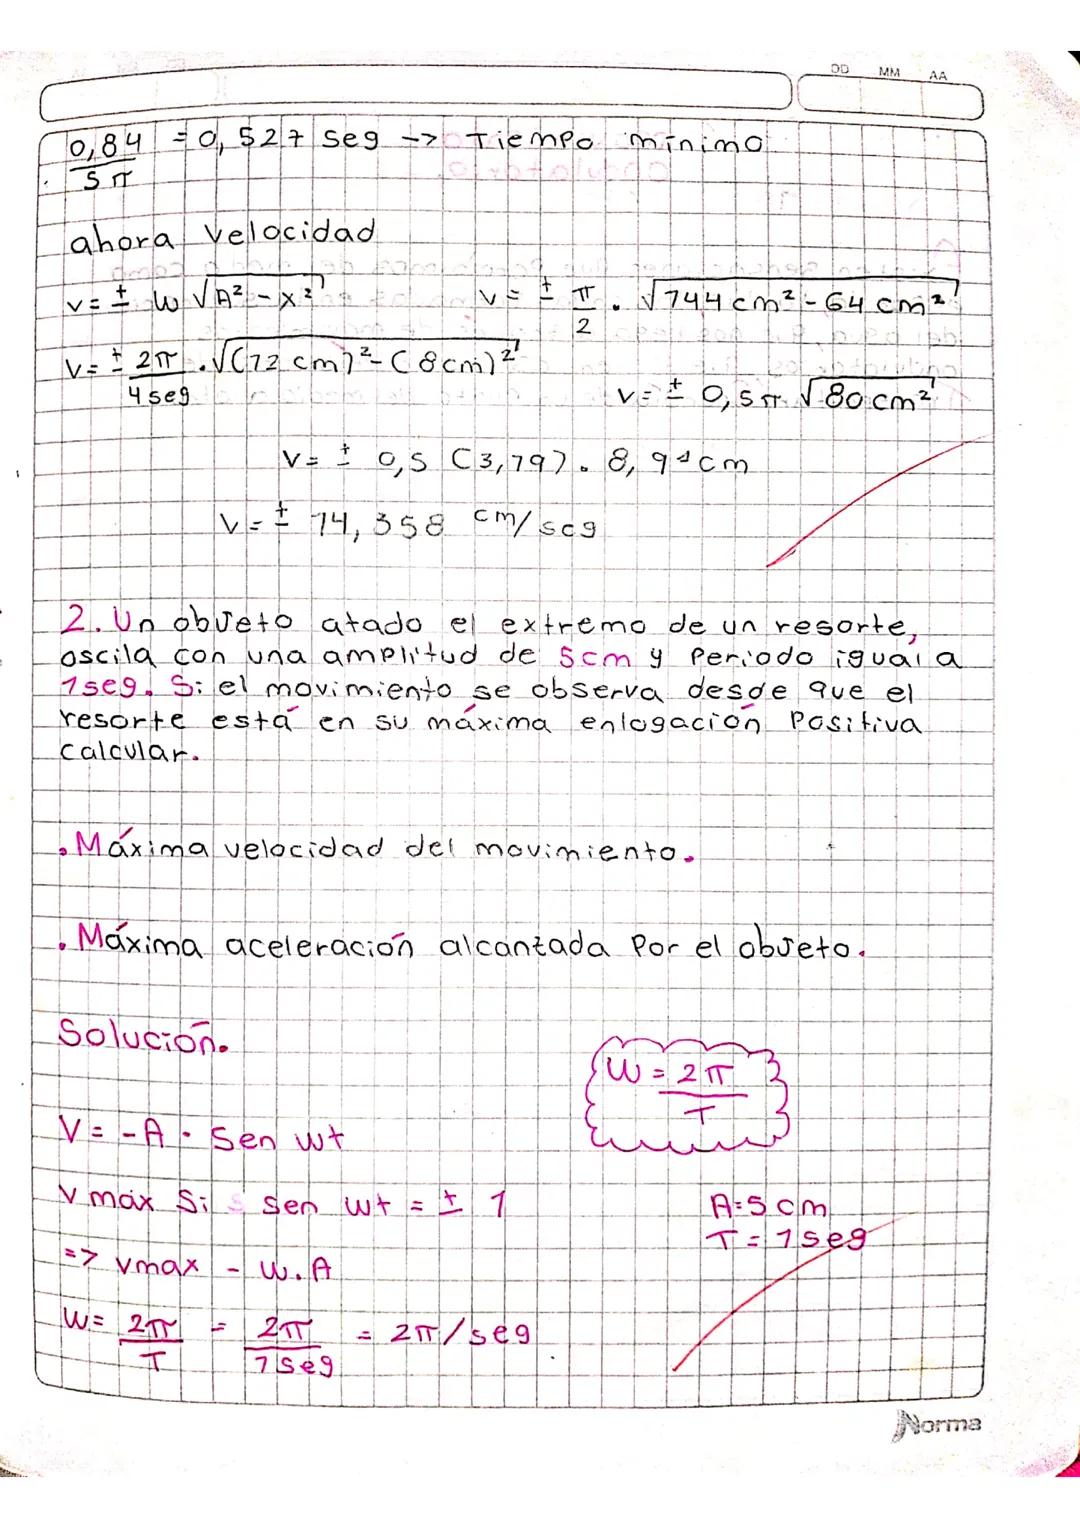 DD MM AA
0,84 = 0,527 seg -> Tiempo mínimo
5π
ahora Velocidad
v= ± W √A² - x²
v = ± π/2 . √144 cm² - 64 cm²
v= ± 2π/4 seg . √(12 cm)² - (8cm)²
v= ± 0,5π √80 cm²
v= ± 0,5 (3,14). 8,94cm
v= ± 14,358 cm/seg
2. Un objeto atado el extremo de un resorte,
oscila con una amplitud de 5cm y Periodo igual a
1seg. Si el movimiento se observa desde que el
resorte está en su máxima enlogación Positiva
calcular.
. Máxima velocidad del movimiento.
. Máxima aceleración alcantada Por el objeto.
Solución.
W = 2π/T
V = -A . Sen wt
V máx Si Sen wt = ± 1
A=5 cm
T = 1seg
=> vmax - W.A
W= 2π/T = 2π/1seg = 2π/seg
Norma